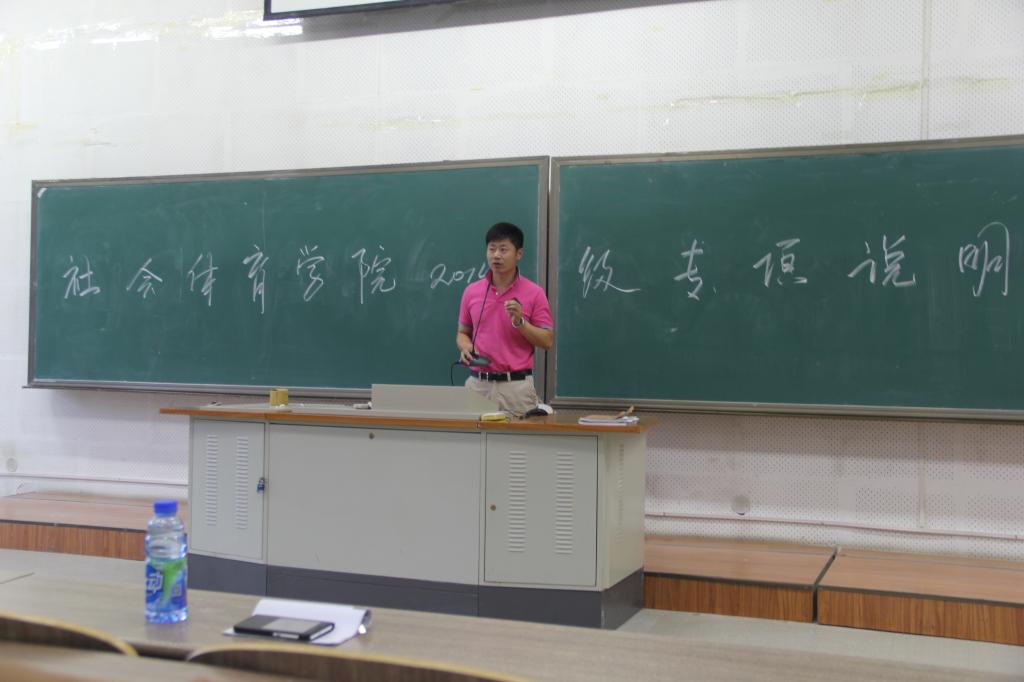 社会体育学院 201
级专项说明
动